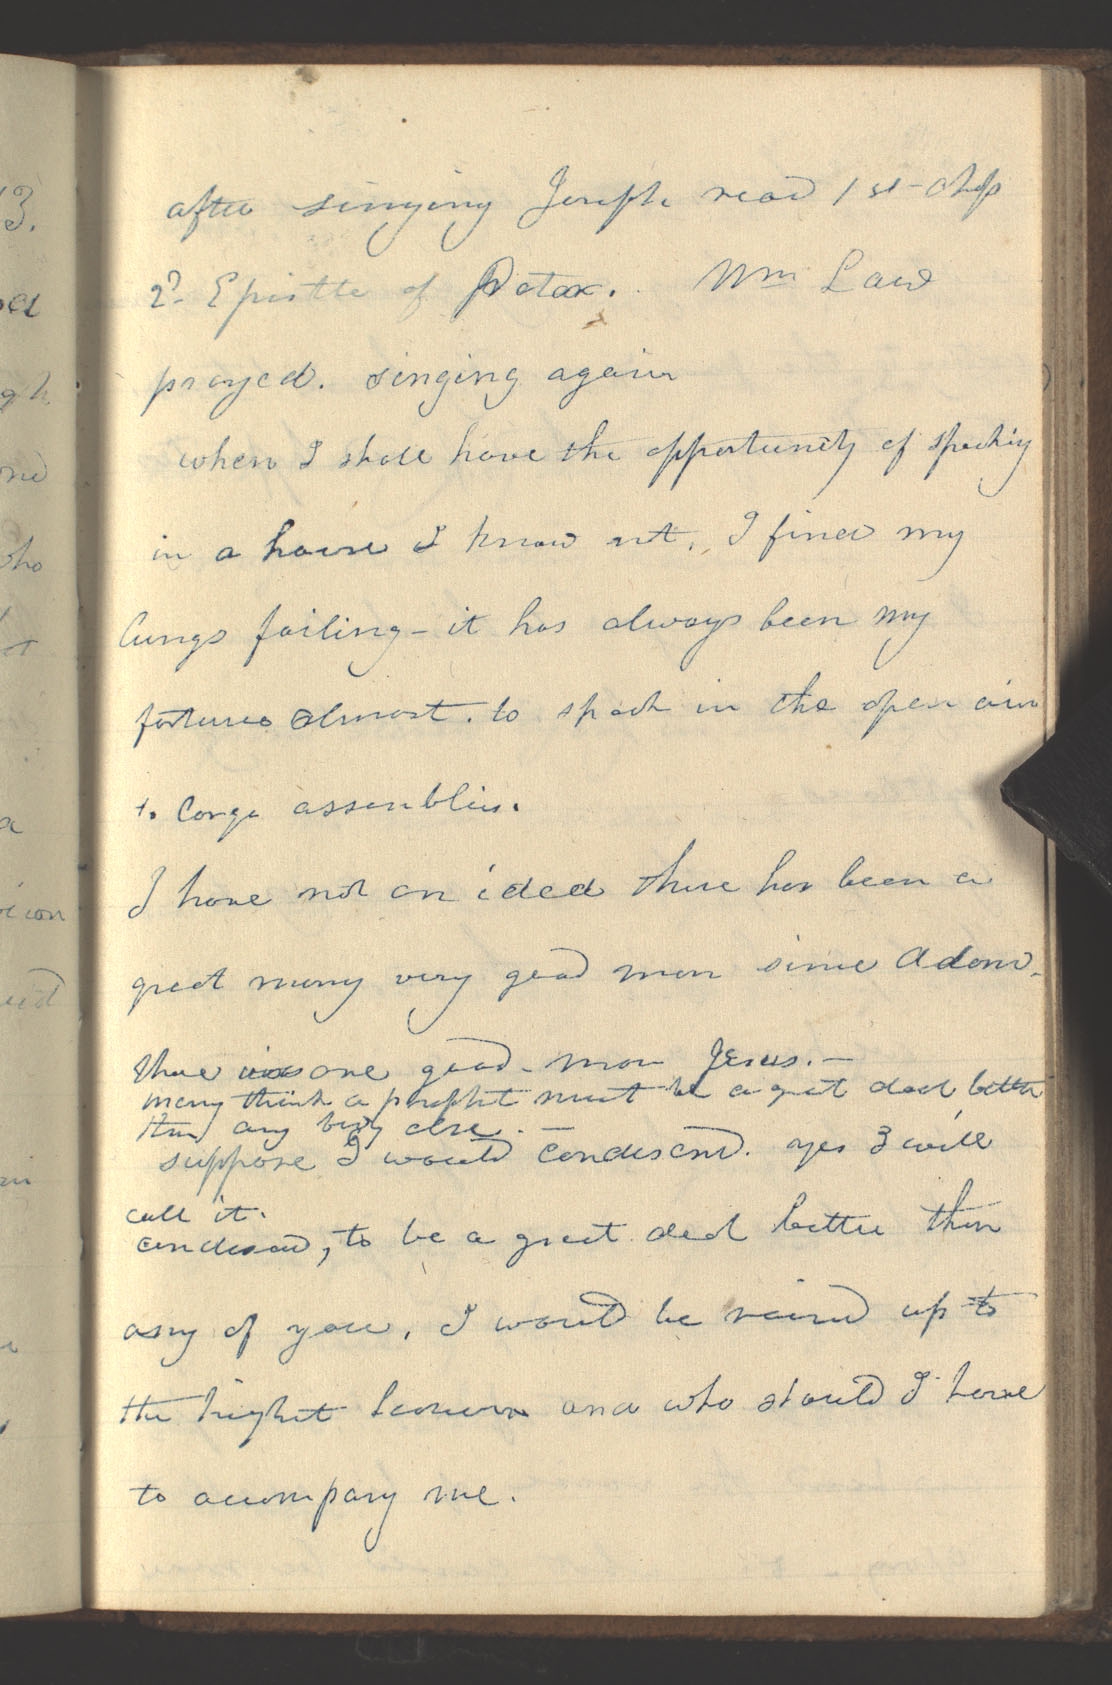 after singing Joseph read 1st chap
2d. Epistle of Peter. Wm Law
prayed. singing again
when I shall have the opportunity of speaking
in a house I know not. I find my
lungs failing - it has always been my
fortune almost. to speak in the open air
to large assemblies.
I have not an idea there has been a
great many very good men since Adam.
there was one good man Jesus. —
many think a prophet must be a great deal better
than any body else. —
suppose I would condescend. yes I will
call it.
condescend, to be a great deal better than
any of you. I would be raised up to
the highest heaven and who should I have
to accompany me.